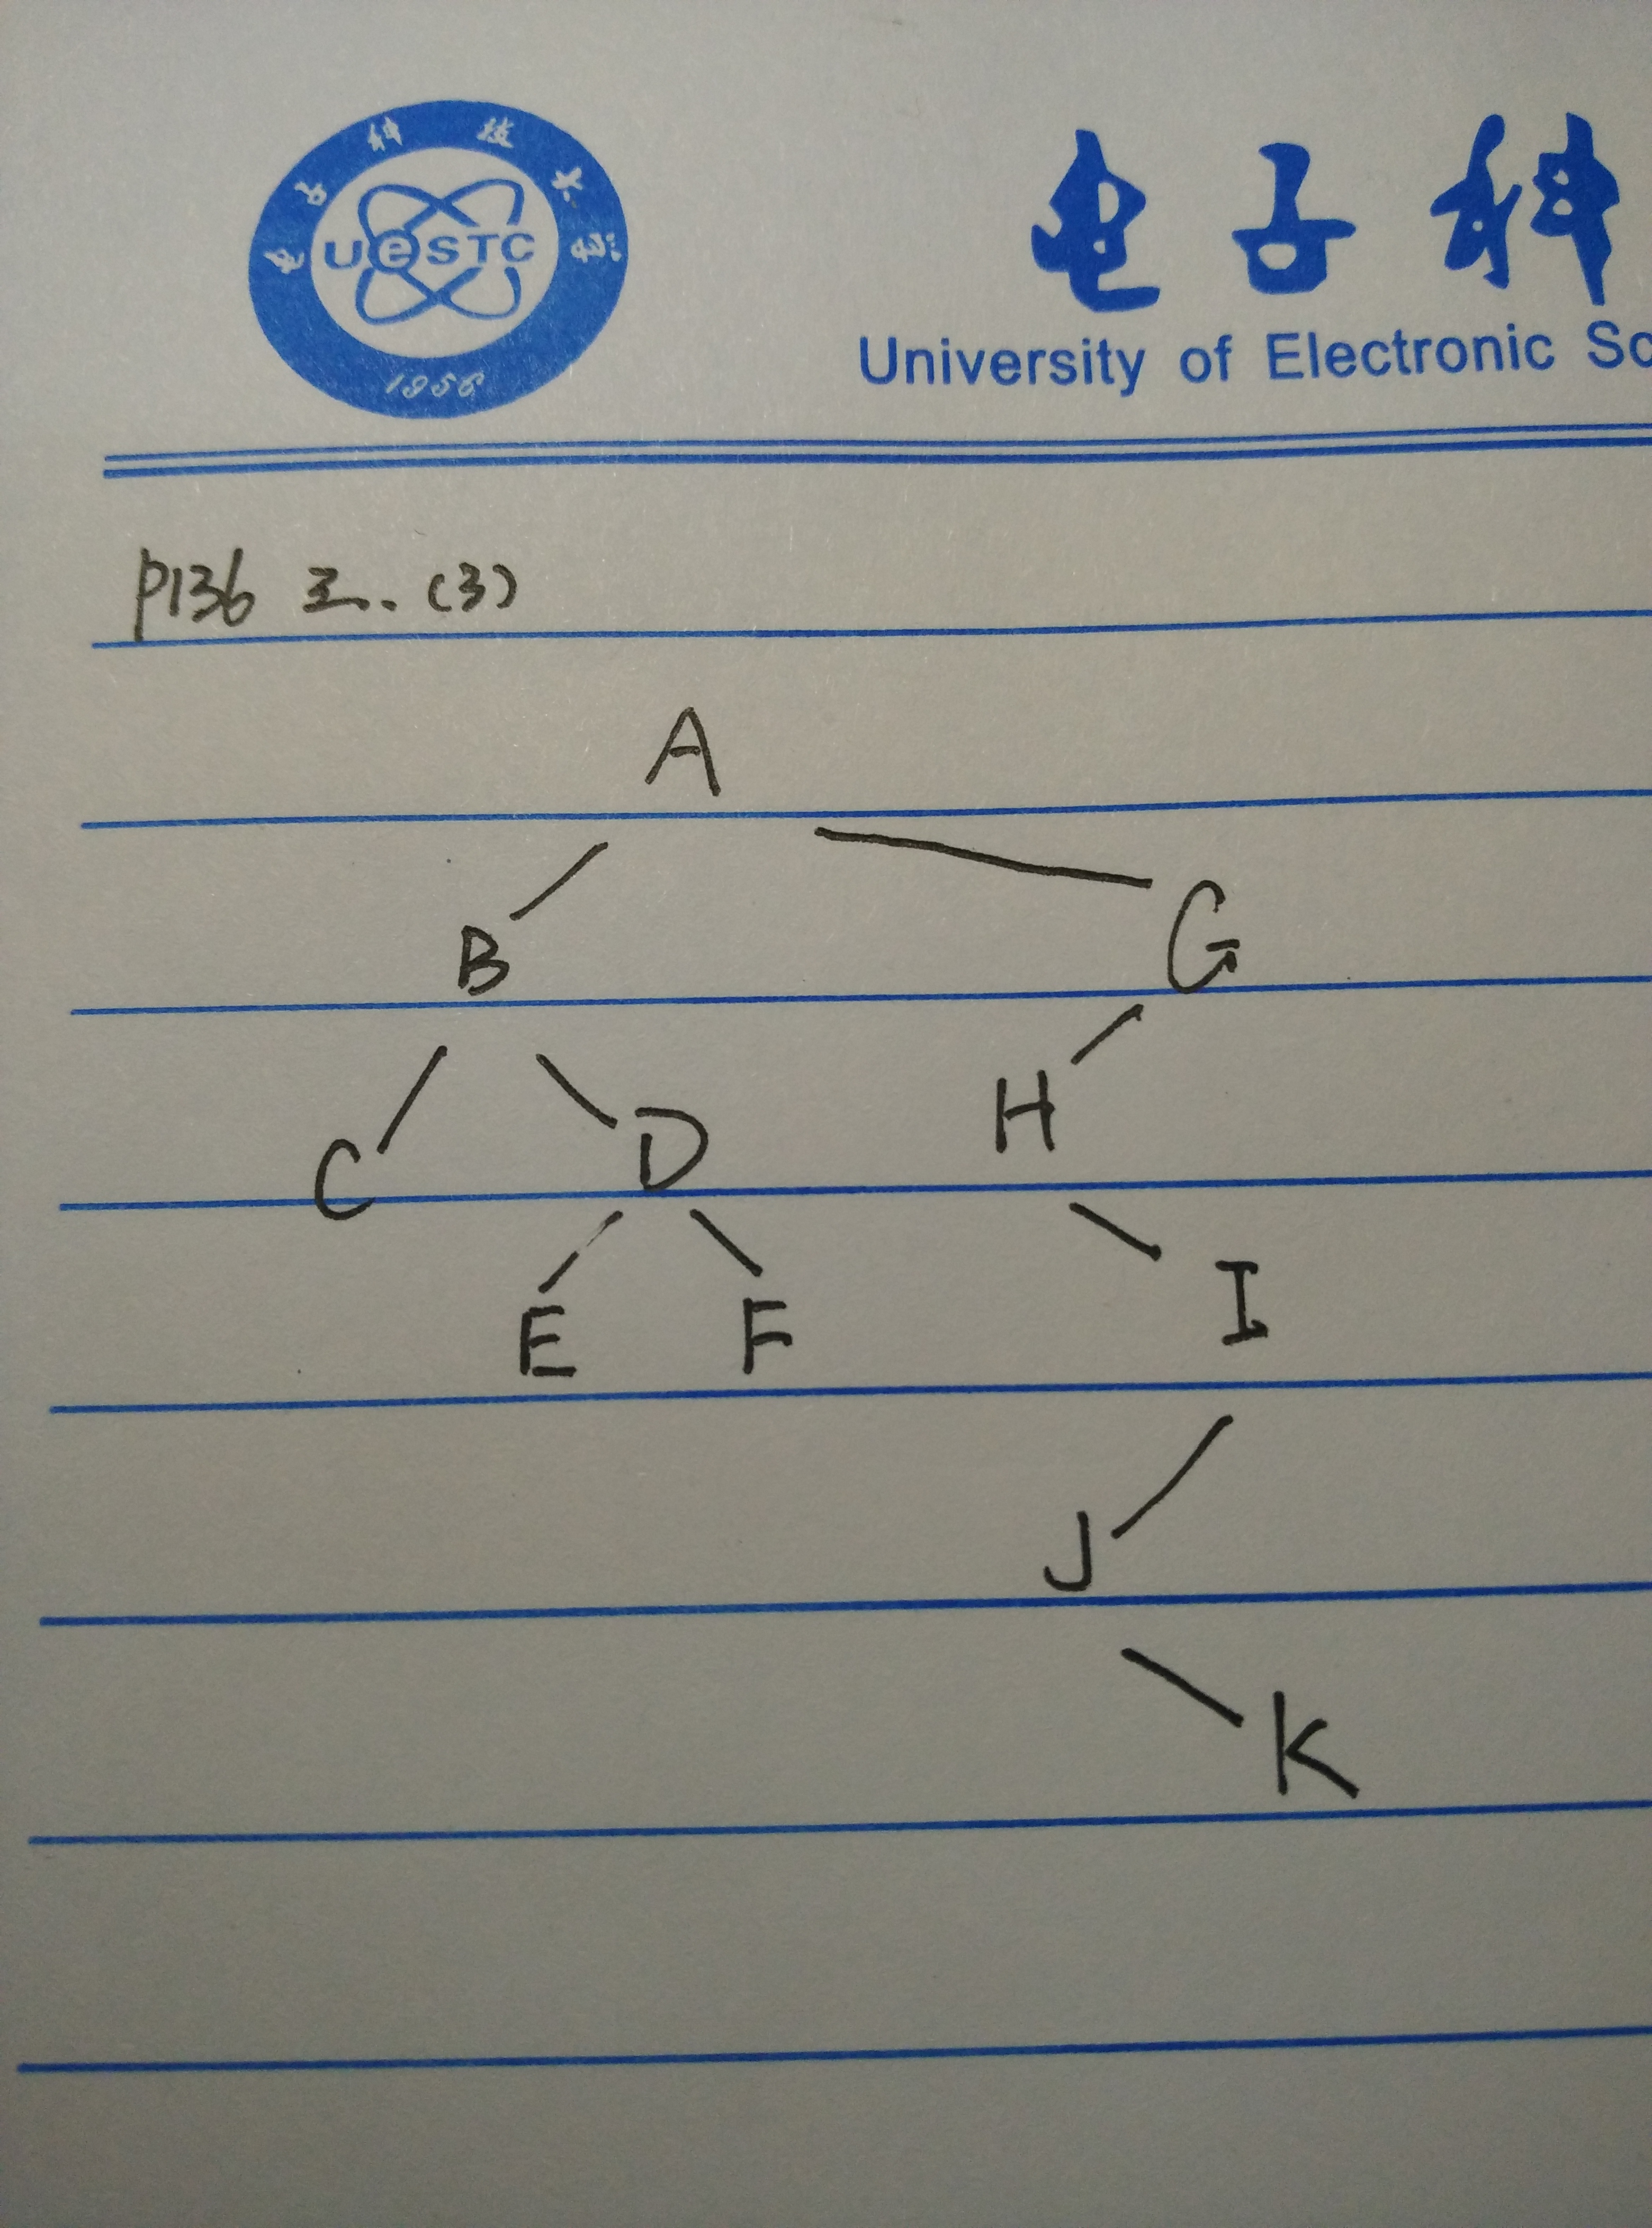 电子科技大学
UeSTC
1956
电子科
University of Electronic Sc
P136 三. (3)
A
B G
C D H
E F I
J
K